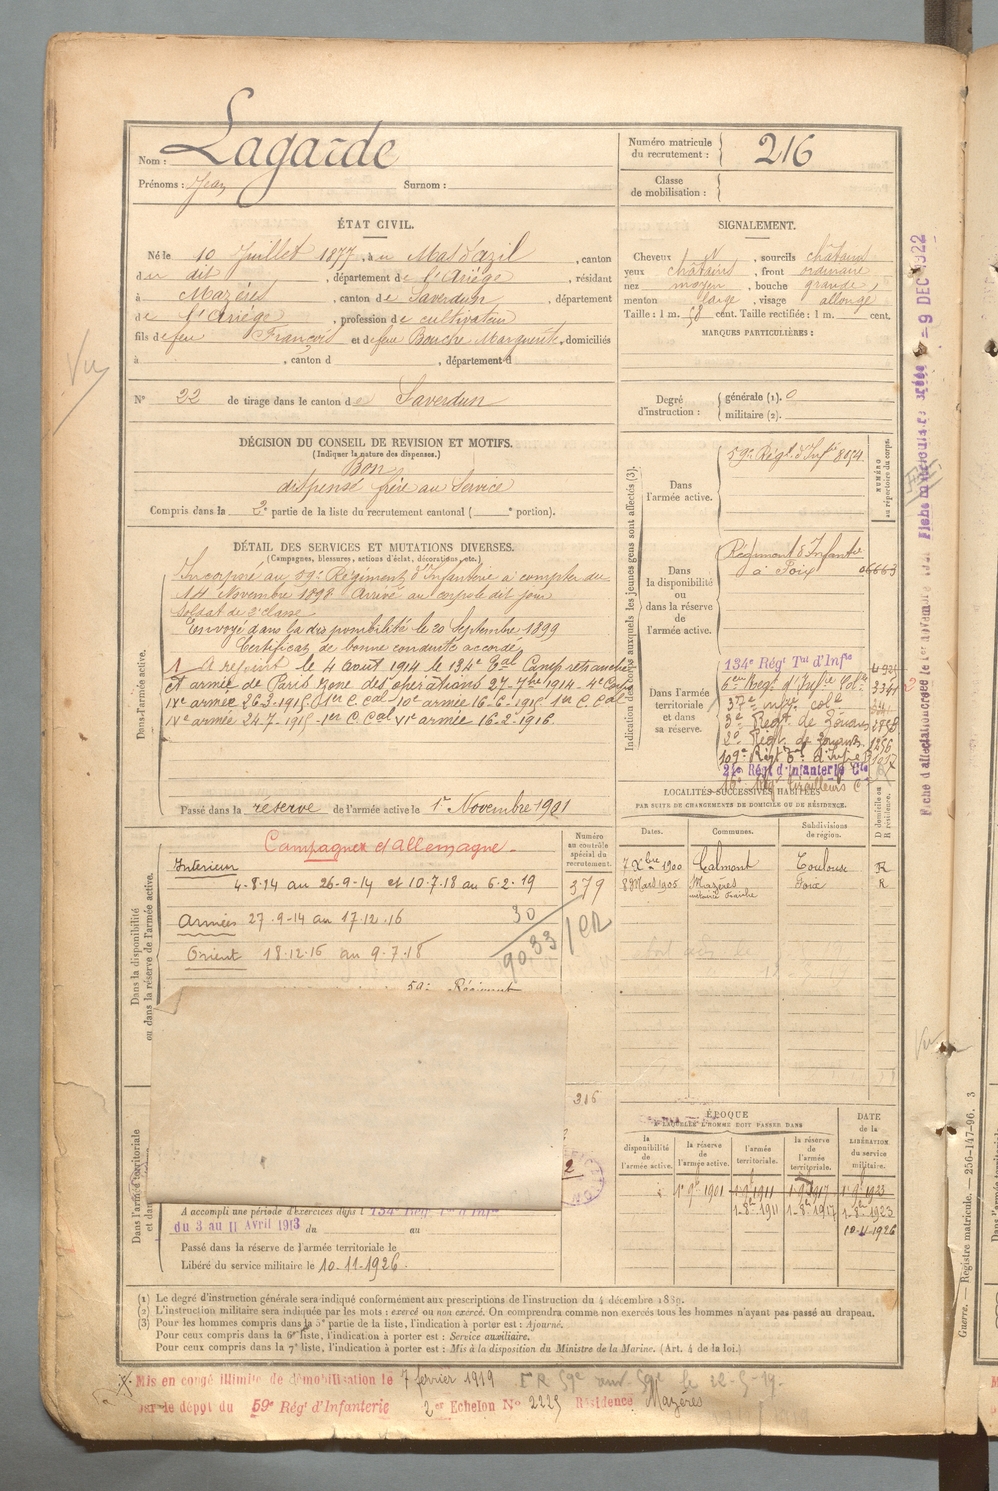 Nom : Lagarde
Prénoms : Jean Surnom :
Numéro matricule du recrutement : 216
Classe de mobilisation :
ÉTAT CIVIL.
Né le 10 Juillet 1877, à au Mas d'azil, canton
du dit, département de l'Ariège, résidant
à Mazères, canton de Saverdun, département
de l'Ariège, profession de cultivateur
fils de feu François et de feu Bouche Marguerite, domiciliés
à , canton d , département d
N° 22 de tirage dans le canton de Saverdun
SIGNALEMENT.
Cheveux N, sourcils châtains
yeux châtains, front ordinaire
nez moyen, bouche grande,
menton large, visage allongé
Taille : 1 m. 58 cent. Taille rectifiée : 1 m. cent.
MARQUES PARTICULIÈRES :
Degré d'instruction : générale (1). 0
militaire (2).
DÉCISION DU CONSEIL DE REVISION ET MOTIFS.
(Indiquer la nature des dispenses.)
Bon
dispensé frère au Service
Compris dans la 2e partie de la liste du recrutement cantonal ( e portion).
DÉTAIL DES SERVICES ET MUTATIONS DIVERSES.
(Campagnes, blessures, actions d'éclat, décorations, etc.)
Dans l'armée active.
Incorporé au 59e Régiment d'Infanterie à compter du
14 Novembre 1898 Arrivé au corps le dit jour
Soldat de 2e classe
Envoyé dans la disponibilité le 20 Septembre 1899
Certificat de bonne conduite accordé
A rejoint le 4 Août 1914 le 134e Tal Camp retranché
et armée de Paris Zone des opérations 27-7bre 1914 - 4e Corps
IVe armée 26-3-1915 1er C. Cal - 10e armée 16-6-1915 1er C. Cal
IVe armée 24.7.1915 - 1er C. Cal VIe armée 16-2-1916
Passé dans la réserve de l'armée active le 1er Novembre 1901
Indication des corps auxquels les jeunes gens sont affectés (3).
NUMÉRO au répertoire du corps.
Dans l'armée active.
59e Régt d'Infie 8154
Dans la disponibilité ou dans la réserve de l'armée active.
Régiment d'Infanterie
à Foix 06663
Dans l'armée territoriale et dans sa réserve.
134e Régt Tal d'Infie
6me Regt d'Infie Colle 3341
37e Infie cole
3e Regt de Zouaves
2e Régt de Zouaves 1256
109e Régt Tal d'Infie
21e Régt d'Infanterie Cle
LOCALITÉS SUCCESSIVES HABITÉES
PAR SUITE DE CHANGEMENTS DE DOMICILE OU DE RÉSIDENCE.
D domicile ou R résidence.
Dates. Communes. Subdivisions de région.
7 Xbre 1900 Calmont Toulouse R
8 Mars 1905 Mazères Foix R
Dans la disponibilité ou dans la réserve de l'armée active.
Campagnes d'Allemagne.
Numéro au contrôle spécial du recrutement.
Intérieur
4-8-14 au 26-9-14 et 10.7.18 au 6.2.19
379
Armées 27.9-14 au 17.12.16
30
9033
Orient 18.12.16 au 9.7.18
59e Régiment
316
Dans l'armée territoriale
A accompli une période d'exercices dans l 134e Régt Tal d'Infie
du 3 au 11 Avril 1913 du au
Passé dans la réserve de l'armée territoriale le
Libéré du service militaire le 10-11-1926.
ÉPOQUE
A LAQUELLE L'HOMME DOIT PASSER DANS
la disponibilité de l'armée active. la réserve de l'armée active. l'armée territoriale. la réserve de l'armée territoriale.
DATE de la LIBÉRATION du service militaire.
1er 9bre 1901 1-9-1911 1-9-1917 1-9-1923
1-8-1911 1-8-1917 1-8-1923
10-11-1926
(1) Le degré d'instruction générale sera indiqué conformément aux prescriptions de l'instruction du 4 décembre 1889.
(2) L'instruction militaire sera indiquée par les mots : exercé ou non exercé. On comprendra comme non exercés tous les hommes n'ayant pas passé au drapeau.
(3) Pour les hommes compris dans la 5e partie de la liste, l'indication à porter est : Ajourné.
Pour ceux compris dans la 6e liste, l'indication à porter est : Service auxiliaire.
Pour ceux compris dans la 7e liste, l'indication à porter est : Mis à la disposition du Ministre de la Marine. (Art. 4 de la loi.)
Mis en congé illimité de démobilisation le 7 février 1919
par le dépôt du 59e Régt d'Infanterie 2er Echelon N° 2225 Résidence Mazères
Vu
9 DEC 1922
Guerre. — Registre matricule. — 256-147-96. 3